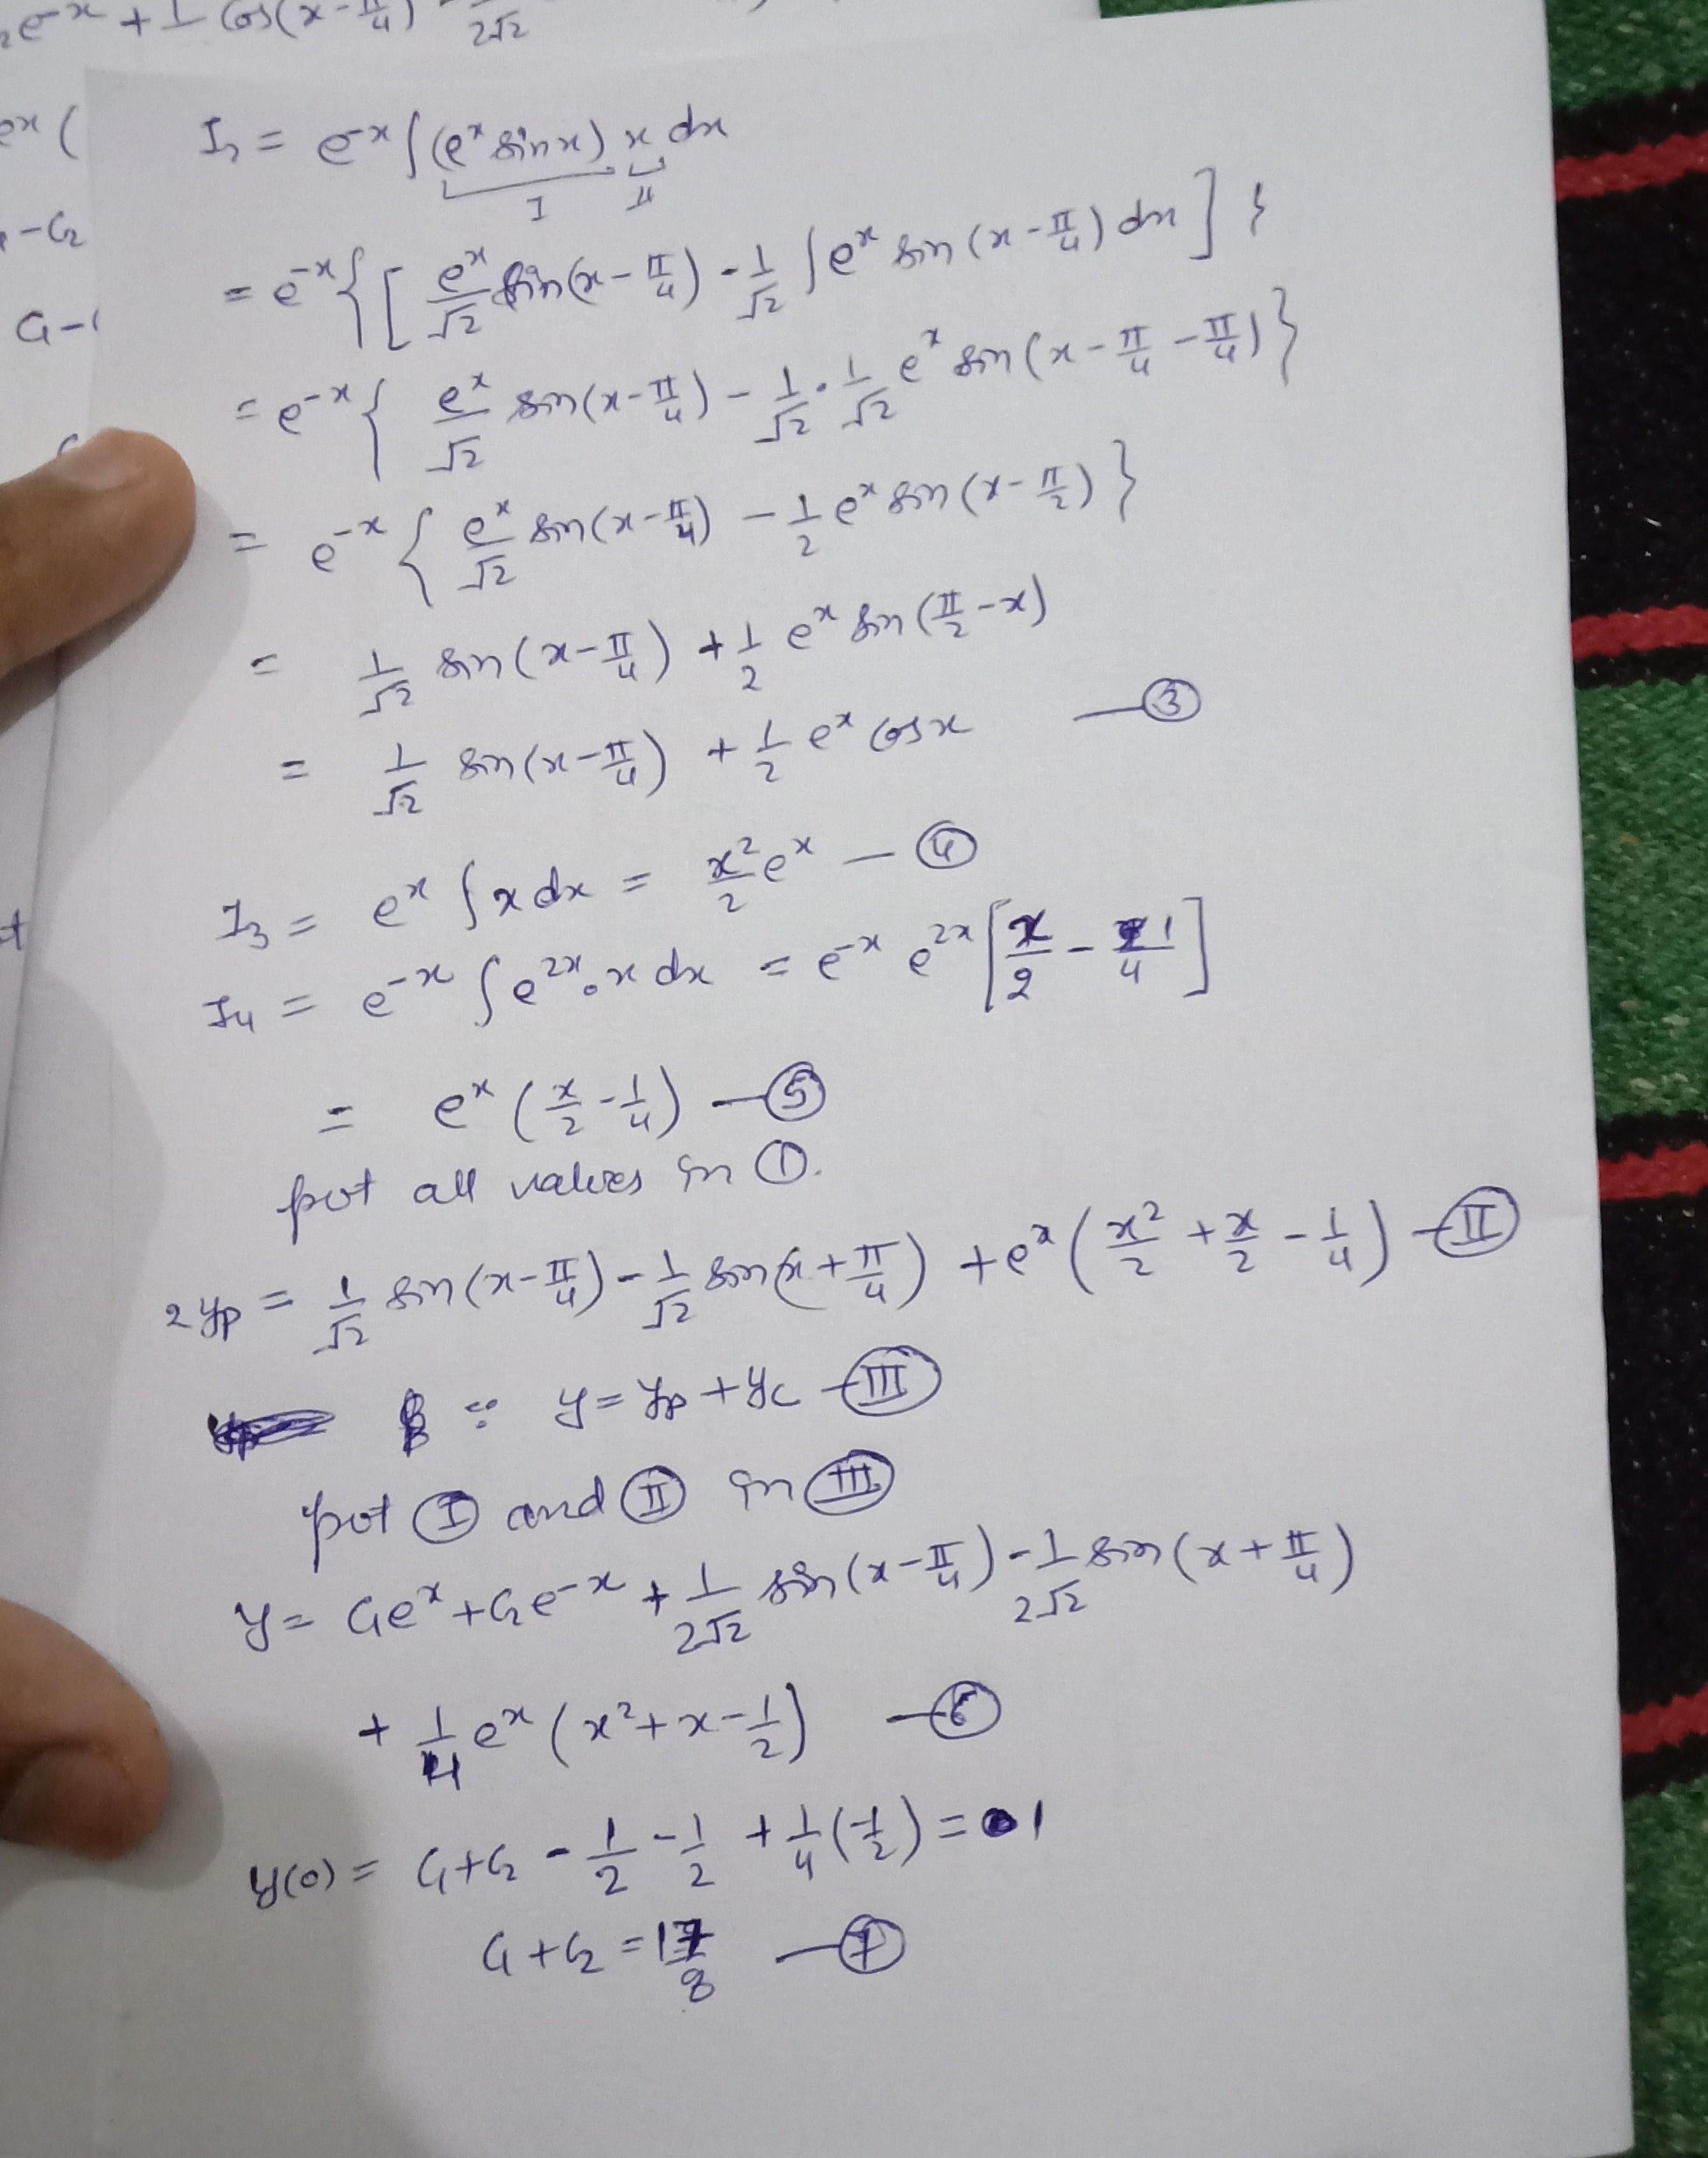 e⁻ˣ + 1 cos(x - π/4)
2√2
eˣ (
- C₂
C₁ -
I₂ = e⁻ˣ ∫(eˣ sin x) x dx
I II
= e⁻ˣ { [ eˣ/√2 sin(x - π/4) - 1/√2 ∫eˣ sin(x - π/4) dx ] }
= e⁻ˣ { eˣ/√2 sin(x - π/4) - 1/√2 · 1/√2 eˣ sin(x - π/4 - π/4) }
= e⁻ˣ { eˣ/√2 sin(x - π/4) - 1/2 eˣ sin(x - π/2) }
= 1/√2 sin(x - π/4) + 1/2 eˣ sin(π/2 - x)
= 1/√2 sin(x - π/4) + 1/2 eˣ cos x — ③
I₃ = eˣ ∫x dx = x²/2 eˣ — ④
I₄ = e⁻ˣ ∫e²ˣ · x dx = e⁻ˣ e²ˣ [x/2 - 1/4]
= eˣ (x/2 - 1/4) — ⑤
put all values in ①.
2yp = 1/√2 sin(x - π/4) - 1/√2 sin(x + π/4) + eˣ (x²/2 + x/2 - 1/4) — Ⅱ
∵ y = yp + yc — Ⅲ
put Ⅰ and Ⅱ in Ⅲ
y = C₁eˣ + C₂e⁻ˣ + 1/2√2 sin(x - π/4) - 1/2√2 sin(x + π/4)
+ 1/4 eˣ (x² + x - 1/2) — ⑥
y(0) = C₁ + C₂ - 1/2 - 1/2 + 1/4 (-1/2) = 1
C₁ + C₂ = 17/8 — ⑦